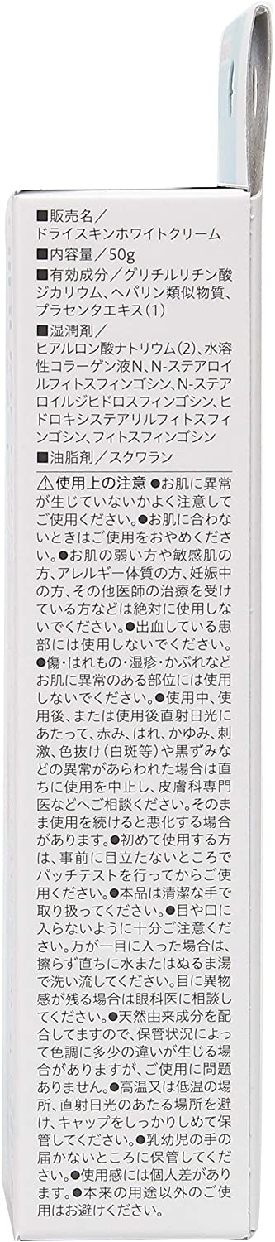 ■販売名／
ドライスキンホワイトクリーム
■内容量／50g
■有効成分／グリチルリチン酸
ジカリウム、ヘパリン類似物質、
プラセンタエキス(1)
■湿潤剤／
ヒアルロン酸ナトリウム(2)、水溶
性コラーゲン液N、N-ステアロイ
ルフィトスフィンゴシン、N-ステア
ロイルジヒドロスフィンゴシン、ヒ
ドロキシステアリルフィトスフィ
ンゴシン、フィトスフィンゴシン
■油脂剤／スクワラン
⚠使用上の注意 ●お肌に異常
が生じていないかよく注意して
ご使用ください。●お肌に合わな
いときはご使用をおやめくださ
い。●お肌の弱い方や敏感肌の
方、アレルギー体質の方、妊娠中
の方、その他医師の治療を受け
ている方などは絶対に使用しな
いでください。●出血している患
部には使用しないでください。
●傷・はれもの・湿疹・かぶれなど
お肌に異常のある部位には使用
しないでください。●使用中、使
用後、または使用後直射日光に
あたって、赤み、はれ、かゆみ、刺
激、色抜け(白斑等)や黒ずみな
どの異常があらわれた場合は直
ちに使用を中止し、皮膚科専門
医などへご相談ください。そのま
ま使用を続けると悪化する場合
があります。●初めて使用する方
は、事前に目立たないところで
パッチテストを行ってからご使
用ください。●本品は清潔な手で
取り扱ってください。●目や口に
入らないように十分ご注意くだ
さい。万が一目に入った場合は、
擦らず直ちに水またはぬるま湯
で洗い流してください。目に異物
感が残る場合は眼科医に相談し
てください。●天然由来成分を配
合してますので、保管状況によっ
て色調に多少の違いが生じる場
合がありますが、ご使用に問題
ありません。●高温又は低温の場
所、直射日光のあたる場所を避
け、キャップをしっかりしめて保
管してください。●乳幼児の手の
届かないところに保管してくだ
さい。●使用感には個人差があり
ます。●本来の用途以外のご使
用はお避けください。